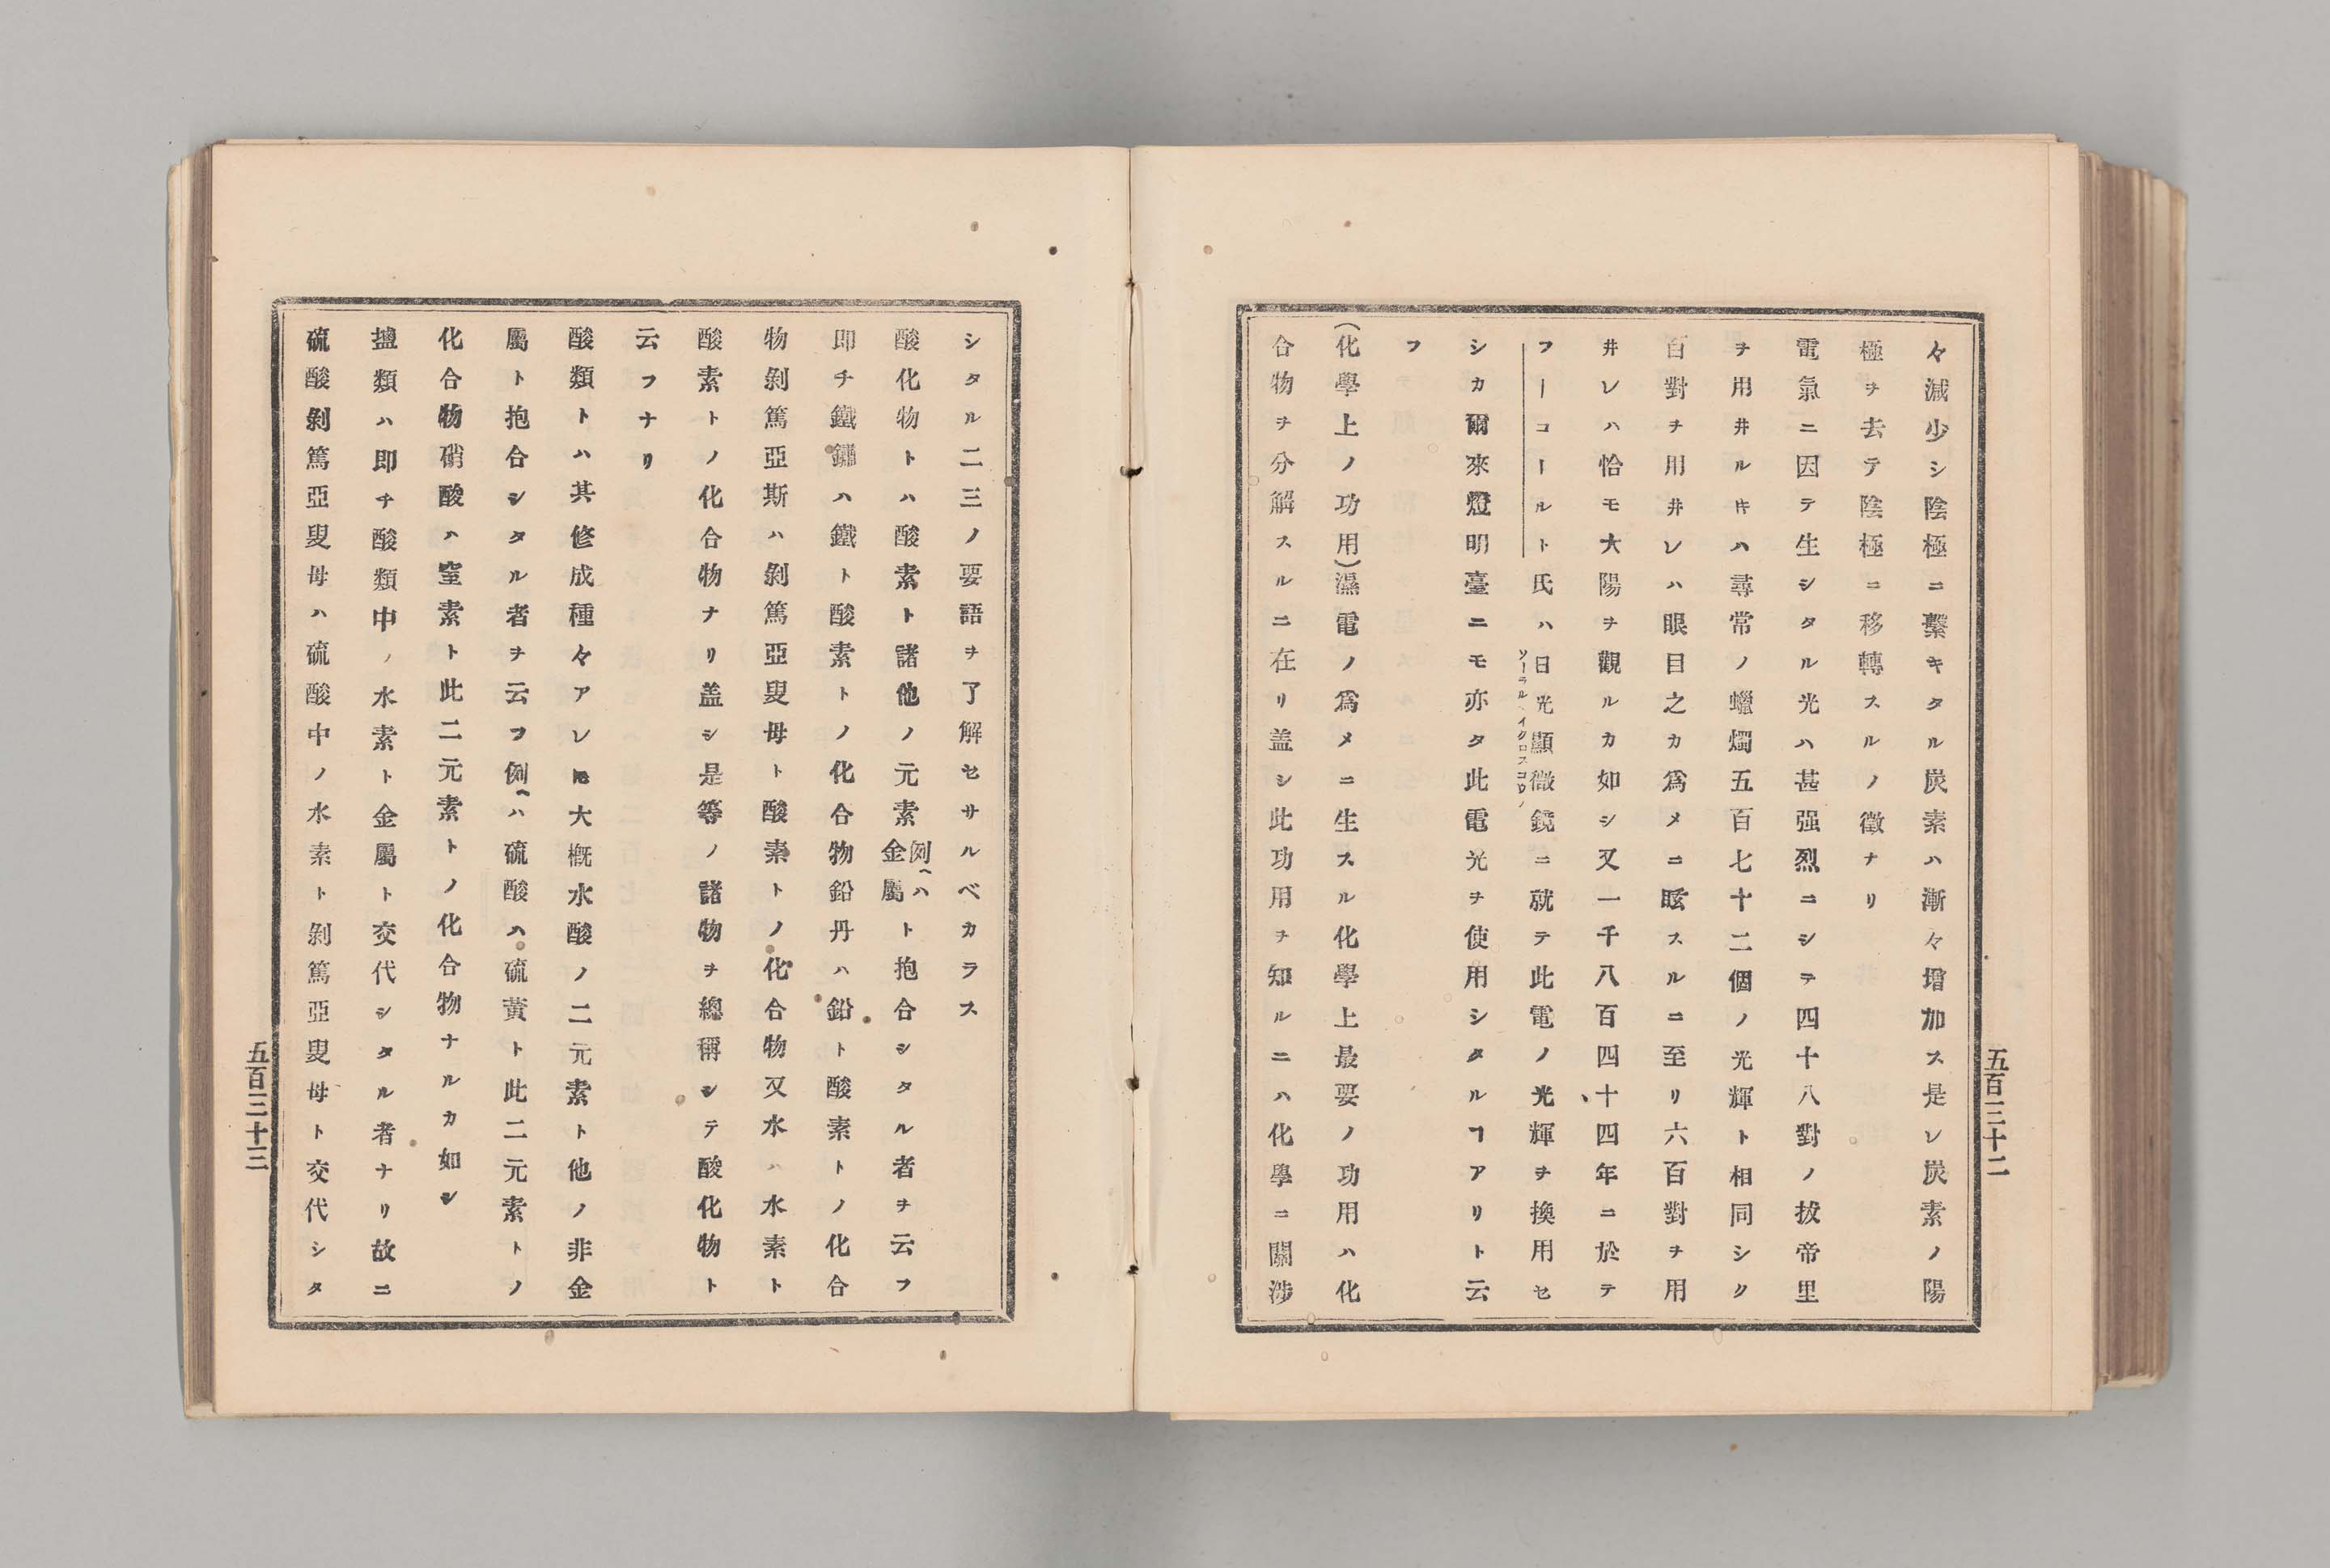 々減少シ陰極ニ繫キタル炭素ハ漸々增加ス是レ炭素ノ陽
極ヲ去テ陰極ニ移轉スルノ徵ナリ
電氣ニ因テ生シタル光ハ甚强烈ニシテ四十八對ノ拔帝里
ヲ用井ルキハ尋常ノ蠟燭五百七十二個ノ光輝ト相同シク
百對ヲ用井レハ眼目之カ爲メニ眩スルニ至リ六百對ヲ用
井レハ恰モ大陽ヲ觀ルカ如シ又一千八百四十四年ニ於テ
フーコールト氏ハ日光顯微鏡ニ就テ此電ノ光輝ヲ換用セ
シカ爾來燈明臺ニモ亦タ此電光ヲ使用シタルヿアリト云
フ
(化學上ノ功用)濕電ノ爲メニ生スル化學上最要ノ功用ハ化
合物ヲ分解スルニ在リ盖シ此功用ヲ知ルニハ化學ニ關涉
五百三十二
シタル二三ノ要語ヲ了解セサルベカラス
酸化物トハ酸素ト諸他ノ元素例ヘハ金屬ト抱合シタル者ヲ云フ
即チ鐵鏽ハ鐵ト酸素トノ化合物鉛丹ハ鉛ト酸素トノ化合
物剝篤亞斯ハ剝篤亞叟母ト酸素トノ化合物又水ハ水素ト
酸素トノ化合物ナリ盖シ是等ノ諸物ヲ總稱シテ酸化物ト
云フナリ
酸類トハ其修成種々アレ𪜈大槪水酸ノ二元素ト他ノ非金
屬ト抱合シタル者ヲ云フ例ヘハ硫酸ハ硫黃ト此二元素トノ
化合物硝酸ハ窒素ト此二元素トノ化合物ナルカ如シ
鹽類ハ即チ酸類中ノ水素ト金屬ト交代シタル者ナリ故ニ
硫酸剝篤亞叟母ハ硫酸中ノ水素ト剝篤亞叟母ト交代シタ
五百三十三